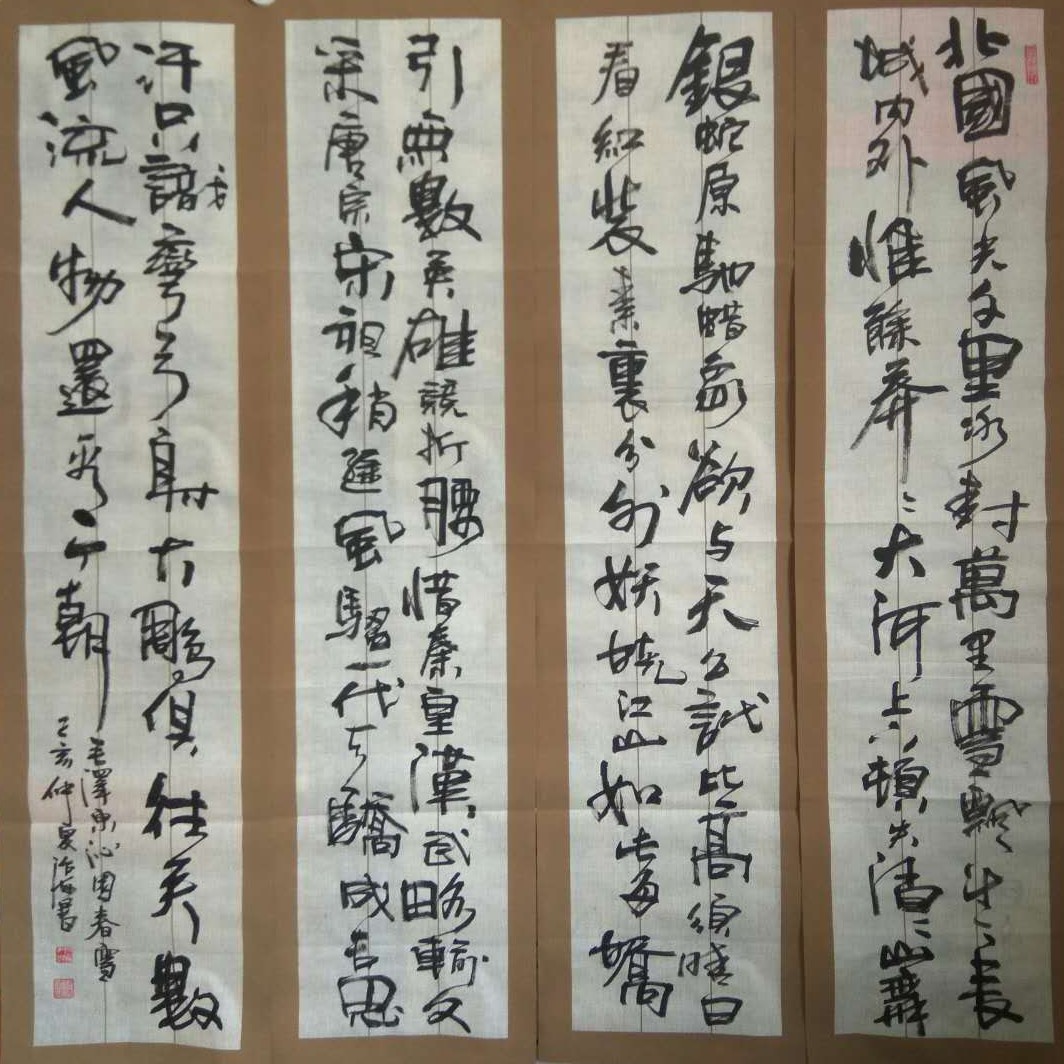 北國風光千里冰封萬里雪飄望長
城内外惟餘莽〻大河上下頓失滔〻山舞
銀蛇原馳蜡象欲与天公試比高須晴日
看紅裝素裹分外妖嬈江山如此多嬌
引無數英雄競折腰惜秦皇漢武略輸文
采唐宗宋祖稍遜風騷一代天驕成吉思
汗只識彎弓射大雕俱往矣數
風流人物還看今朝
毛澤東沁園春雪
己亥仲夏 書